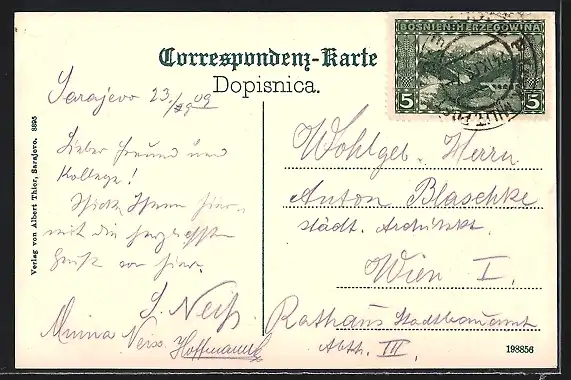 BOSNIEN-HERZEGOWINA
5 5
MILIT. POST
Correspondenz-Karte
Dopisnica.
Sarajevo 23./ 09
Lieber Freund und
Kollege!
Schicke Ihnen hier-
mit die herzlichsten
Grüße von hier.
Verlag von Albert Thier, Sarajevo. 8895
Wohlgeb. Herrn
Anton Blaschke
städt. Architekt
Wien I.
Rathaus Stadtbauamt
Abth. III
198856